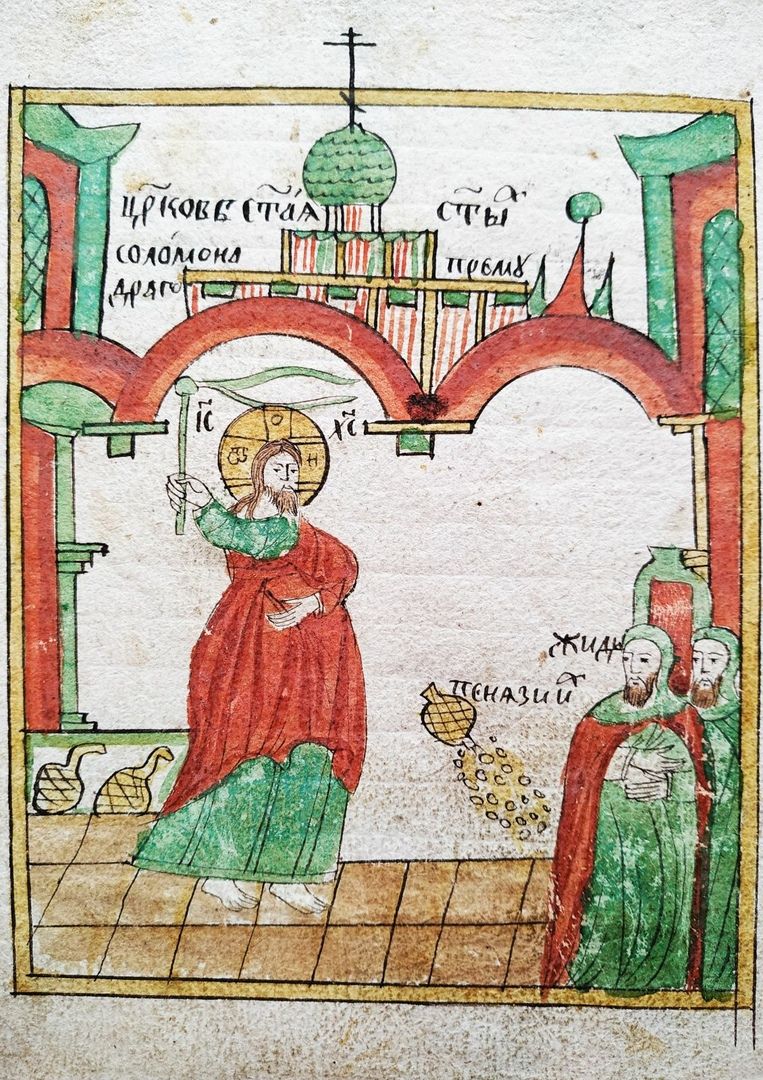 црⷪ҇ковь ст҃аѧ ст҃ыⷯ
соломона прему
драго
іс҃ хс҃
ѿ о н
жиды
пенѧзи иⷯ